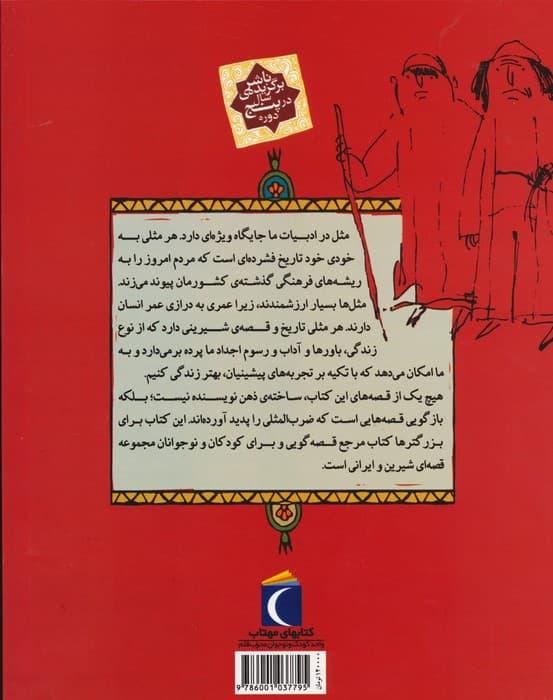 ناشر
برگزیده‌ی
سال
در پنج
دوره
مثل در ادبیات ما جایگاه ویژه‌ای دارد. هر مثلی به
خودی خود تاریخ فشرده‌ای است که مردم امروز را به
ریشه‌های فرهنگی گذشته‌ی کشورمان پیوند می‌زند.
مثل‌ها بسیار ارزشمندند، زیرا عمری به درازی عمر انسان
دارند. هر مثلی تاریخ و قصه‌ی شیرینی دارد که از نوع
زندگی، باورها و آداب و رسوم اجداد ما پرده برمی‌دارد و به
ما امکان می‌دهد که با تکیه بر تجربه‌های پیشینیان، بهتر زندگی کنیم.
هیچ یک از قصه‌های این کتاب، ساخته‌ی ذهن نویسنده نیست؛ بلکه
بازگویی قصه‌هایی است که ضرب‌المثلی را پدید آورده‌اند. این کتاب برای
بزرگترها کتاب مرجع قصه‌گویی و برای کودکان و نوجوانان مجموعه
قصه‌ای شیرین و ایرانی است.
کتابهای مهتاب
واحد کودک و نوجوان محراب قلم
۱۴۰۰۰۰ تومان
9 786001 037795